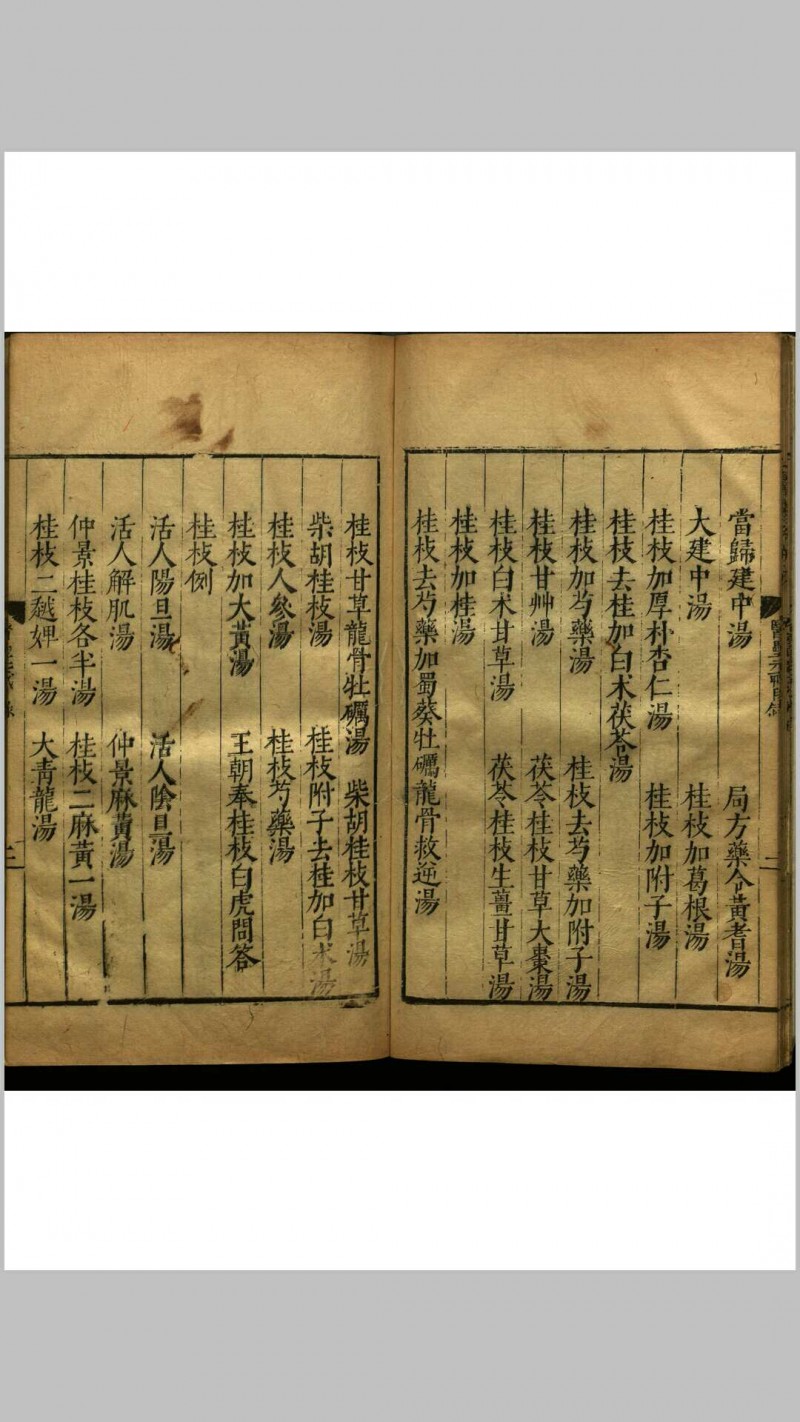 當歸建中湯　局方藥令黃耆湯
大建中湯　桂枝加葛根湯
桂枝加厚朴杏仁湯　桂枝加附子湯
桂枝去桂加白术茯苓湯
桂枝加芍藥湯　桂枝去芍藥加附子湯
桂枝甘艸湯　茯苓桂枝甘草大棗湯
桂枝白术甘草湯　茯苓桂枝生薑甘草湯
桂枝加桂湯
桂枝去芍藥加蜀葵牡礪龍骨救逆湯
桂枝甘草龍骨牡礪湯　柴胡桂枝甘草湯
柴胡桂枝湯　桂枝附子去桂加白术湯
桂枝人參湯　桂枝芍藥湯
桂枝加大黃湯　王朝奉桂枝白虎問答
桂枝例
活人陽旦湯　活人陰旦湯
活人解肌湯　仲景麻黃湯
仲景桂枝各半湯　桂枝二麻黃一湯
桂枝二越婢一湯　大青龍湯